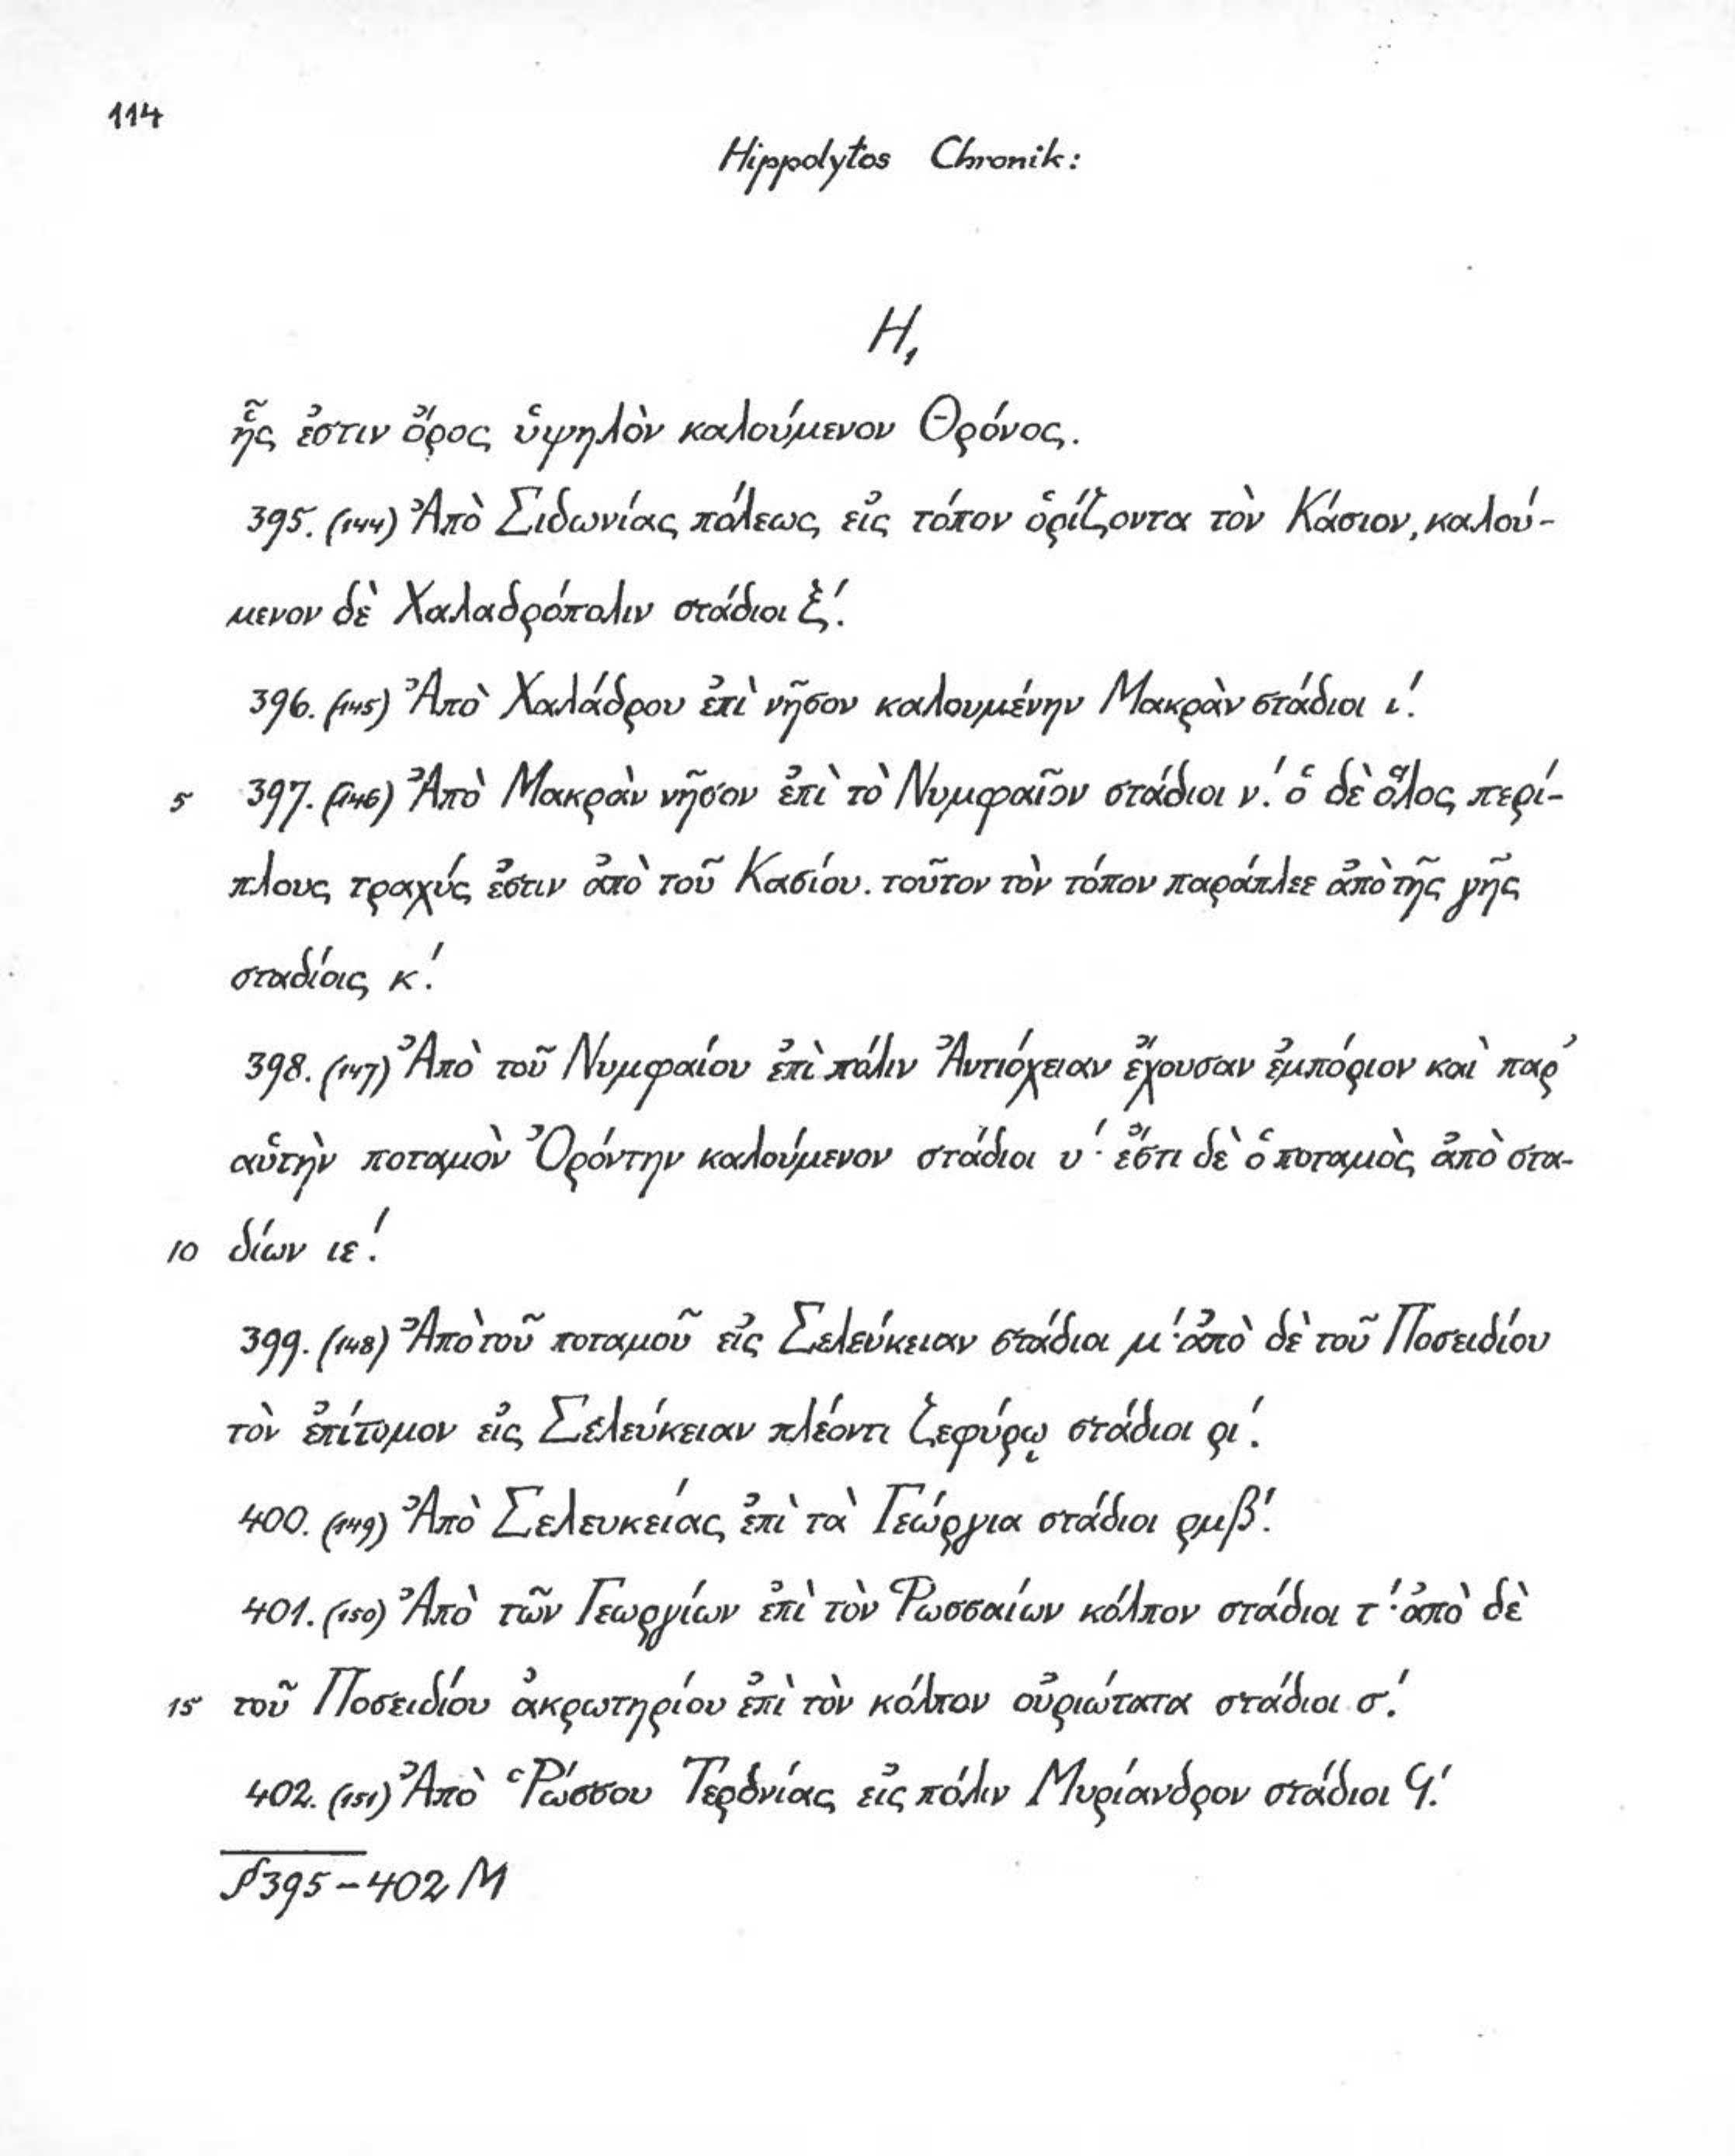 114
Hippolytos Chronik:
H₁
ἧς ἐστιν ὄρος ὑψηλὸν καλούμενον Θρόνος.
395. (144) Ἀπὸ Σιδωνίας πόλεως εἰς τόπον ὁρίζοντα τὸν Κάσιον, καλού-
μενον δὲ Χαλαδρόπολιν στάδιοι ξ'.
396. (145) Ἀπὸ Χαλάδρου ἐπὶ νῆσον καλουμένην Μακρὰν στάδιοι ι'.
5 397. (146) Ἀπὸ Μακρὰν νῆσον ἐπὶ τὸ Νυμφαῖον στάδιοι ν'. ὁ δὲ ὅλος περί-
πλους τραχύς ἐστιν ἀπὸ τοῦ Κασίου. τοῦτον τὸν τόπον παράπλεε ἀπὸ τῆς γῆς
σταδίοις κ'.
398. (147) Ἀπὸ τοῦ Νυμφαίου ἐπὶ πόλιν Ἀντιόχειαν ἔχουσαν ἐμπόριον καὶ παρ'
αὑτὴν ποταμὸν Ὀρόντην καλούμενον στάδιοι υ'· ἔστι δὲ ὁ ποταμὸς ἀπὸ στα-
10 δίων ιε'.
399. (148) Ἀπὸ τοῦ ποταμοῦ εἰς Σελεύκειαν στάδιοι μ'· ἀπὸ δὲ τοῦ Ποσειδίου
τὸν ἐπίτομον εἰς Σελεύκειαν πλέοντι ζεφύρῳ στάδιοι ρι'.
400. (149) Ἀπὸ Σελευκείας ἐπὶ τὰ Γεώργια στάδιοι ρμβ'.
401. (150) Ἀπὸ τῶν Γεωργίων ἐπὶ τὸν Ῥωσσαίων κόλπον στάδιοι τ'· ἀπὸ δὲ
15 τοῦ Ποσειδίου ἀκρωτηρίου ἐπὶ τὸν κόλπον οὐριώτατα στάδιοι σ'.
402. (151) Ἀπὸ Ῥώσσου Τερδνίας εἰς πόλιν Μυρίανδρον στάδιοι Ϟ'.
§395-402 M